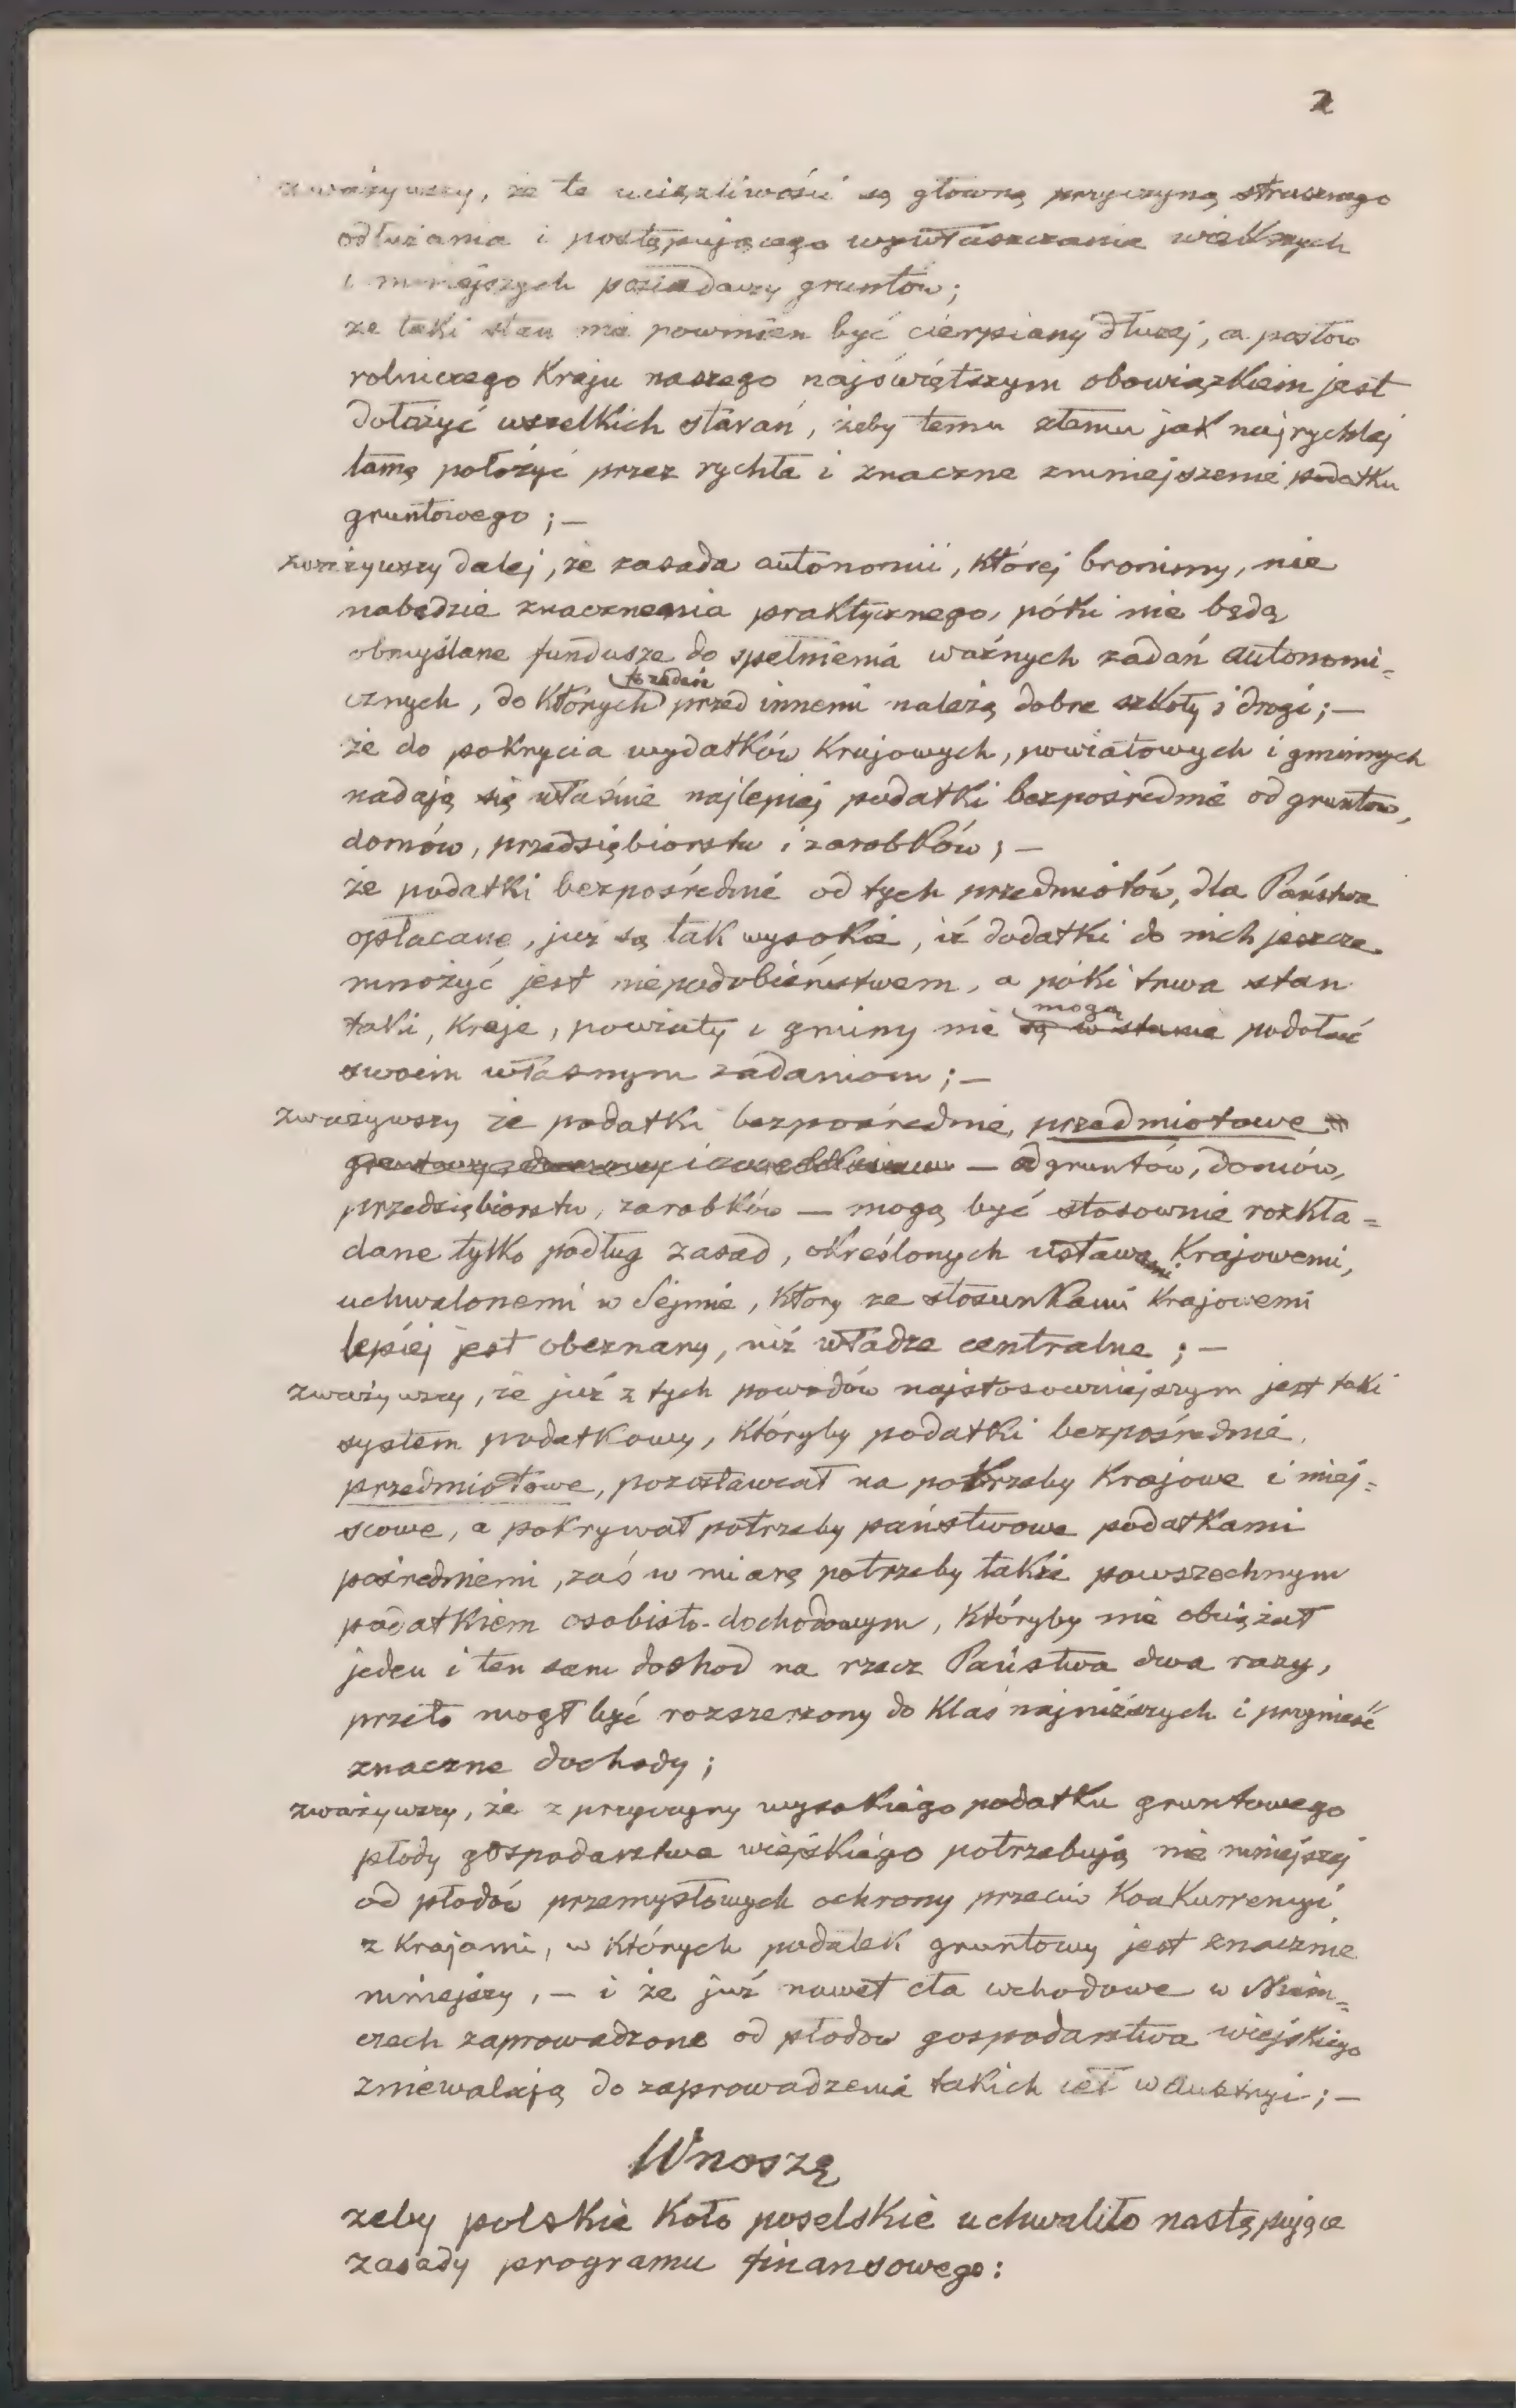 2
zważywszy, że te uciążliwości są główną przyczyną strasznego
odłużania i postępującego wywłaszczania większych
i mniejszych posiadaczy gruntów;
że taki stan nie powinien być cierpiany dłużej, a posłów
rolniczego Kraju naszego najświętszym obowiązkiem jest
dołożyć wszelkich starań, żeby temu złemu jak najrychlej
tamę położyć przez rychłe i znaczne zmniejszenie podatku
gruntowego; —
zważywszy dalej, że zasada autonomii, której bronimy, nie
nabędzie znaczenia praktycznego, póki nie będą
obmyślane fundusze do spełnienia ważnych zadań autonomi=
cznych, do których przed innemi należą dobre szkoły i drogi; —
że do pokrycia wydatków Krajowych, powiatowych i gminnych
nadają się właśnie najlepiej podatki bezpośrednie od gruntów,
domów, przedsiębiorstw i zarobków; —
że podatki bezpośrednie od tych przedmiotów, dla Państwa
opłacane, już są tak wysokie, iż dodatki do nich jeszcze
mnożyć jest niepodobieństwem, a póki trwa stan
taki, Kraje, powiaty i gminy nie są w stanie mogą podołać
swoim własnym zadaniom; —
zważywszy że podatki bezpośrednie, przedmiotowe
— od gruntów, domów,
przedsiębiorstw, zarobków — mogą być stosownie rozkła=
dane tylko podług zasad, określonych ustawami Krajowemi,
uchwalonemi w Sejmie, który ze stosunkami Krajowemi
lepiej jest obeznany, niż władze centralne; —
zważywszy, że już z tych powodów najstosowniejszym jest taki
system podatkowy, któryby podatki bezpośrednie,
przedmiotowe, pozostawiał na potrzeby Krajowe i miej=
scowe, a pokrywał potrzeby państwowe podatkami
pośredniemi, zaś w miarę potrzeby także powszechnym
podatkiem osobisto-dochodowym, któryby nie obciążał
jeden i ten sam dochód na rzecz Państwa dwa razy,
przeto mógł być rozszerzony do Klas najniższych i przynieść
znaczne dochody;
zważywszy, że z przyczyny wysokiego podatku gruntowego
płody gospodarstwa wiejskiego potrzebują nie mniejszej
od płodów przemysłowych ochrony przeciw Konkurrencyi
z Krajami, w których podatek gruntowy jest znacznie
mniejszy, — i że już nawet cła wchodowe w Niem=
czech zaprowadzone od płodów gospodarstwa wiejskiego
zniewalają do zaprowadzenia takich ceł w Austryi; —
Wnoszę
żeby polskie Koło poselskie uchwaliło następujące
zasady programu finansowego: